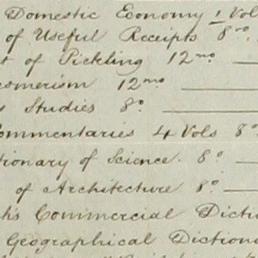 Domestic Economy 1 Vol
of Useful Receipts 8vo.
of Pickling 12mo
esmerism 12mo
Studies 8o
Commentaries 4 Vols 8o
tionary of Science. 8o
of Architecture 8o
h's Commercial Dictio
Geographical Diction